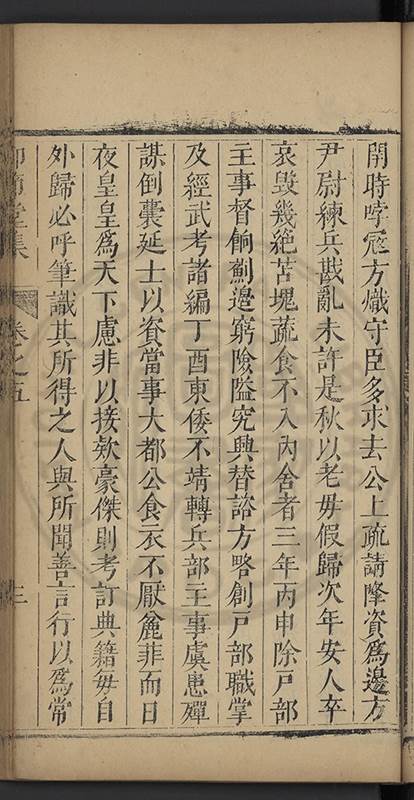 開時哱寇方熾守臣多求去公上疏請降資爲邊方
尹尉練兵戡亂未許是秋以老母假歸次年安人卒
哀毀幾絶苫塊蔬食不入内舍者三年丙申除戸部
主事督餉薊邊窮險隘究興替諮方略創戸部職掌
及經武考諸編丁酉東倭不靖轉兵部主事虞患殫
謀倒囊延士以資當事大都公食衣不厭麄菲而日
夜皇皇爲天下慮非以接欵豪傑則考訂典籍毎自
外歸必呼筆識其所得之人與所聞善言行以爲常
卷之五
三